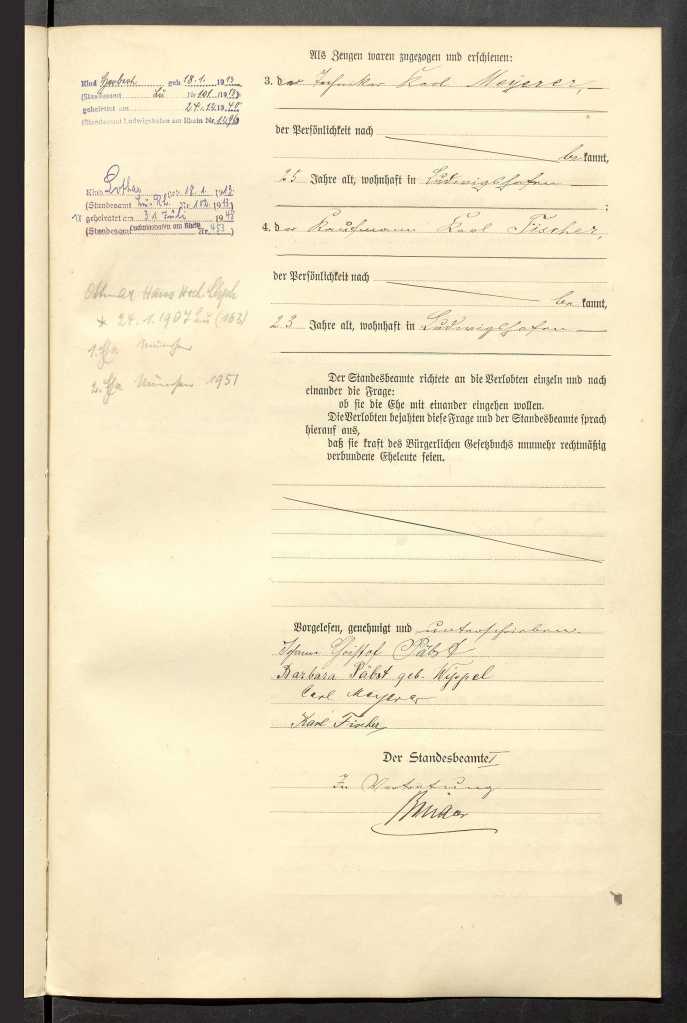 Als Zeugen waren zugezogen und erschienen:
3. der Techniker Karl Meyerer,
der Persönlichkeit nach
bekannt,
25 Jahre alt, wohnhaft in Ludwigshafen
;
4. der Kaufmann Karl Fischer,
der Persönlichkeit nach
bekannt,
23 Jahre alt, wohnhaft in Ludwigshafen
Der Standesbeamte richtete an die Verlobten einzeln und nach
einander die Frage:
ob sie die Ehe mit einander eingehen wollen.
Die Verlobten bejahten diese Frage und der Standesbeamte sprach
hierauf aus,
daß sie kraft des Bürgerlichen Gesetzbuchs nunmehr rechtmäßig
verbundene Eheleute seien.
Vorgelesen, genehmigt und unterschrieben.
Christof Päbst
Barbara Päbst geb. Wippel
Carl Meyerer
Karl Fischer
Der Standesbeamte
In Vertretung
Kind geb. 18.1. 1913
(Standesamt Lu Nr 101 /19
geheiratet am 24.12.19
(Standesamt Ludwigshafen am Rhein Nr.
Kind Lothar geb. 18.1.
(Standesamt Lu. Rh. Nr. 102
geheiratet am 31 Juli 1948
(Standesamt Ludwigshafen am Rhein Nr. 453)
Ottmar Hans
* 24.1.1907 Lu (163)
1. Ehe München
2. Ehe München 1951